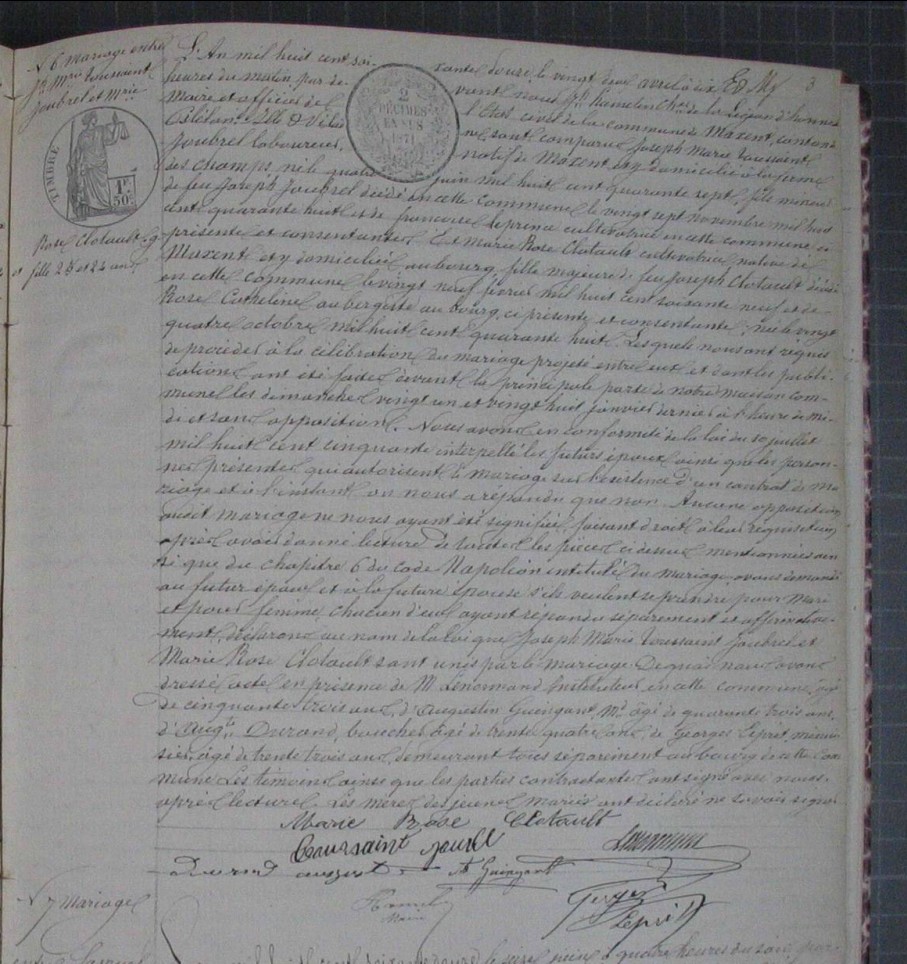 N 6 mariage entre
Jh Mrie Toussaint
Joubrel et Mrie
TIMBRE
1F
50c
Rose Clotault
fille 25 et 24 ans
2
DÉCIMES
EN SUS
1871
3
L'An mil huit cent soixante douze, le vingt avril à dix
heures du matin par devant nous Hamelin Cher de la Légion d'honneur
Maire et officier de l'Etat civil de la commune de Maxent, canton de
Plélan Ille & Vilaine sont comparus Joseph Marie Toussaint
Joubrel laboureur, natif de Maxent et y domicilié à la ferme
des champs né le quatre juin mil huit cent quarante sept, fils mineur
de feu Joseph Joubrel décédé en cette commune le vingt sept novembre mil huit
cent quarante huit et de françoise Leprince cultivatrice en cette commune ci
présente et consentante. Et Marie Rose Clotault cultivatrice native de
Maxent et y domiciliée au bourg fille majeure de feu Joseph Clotault décédé
en cette commune le vingt neuf février mil huit cent soixante neuf et de
Rose Catheline aubergiste au bourg, ci présente et consentante, née le vingt
quatre octobre mil huit cent quarante huit. Lesquels nous ont requis
de procéder à la célébration du mariage projeté entre eux et dont les publi-
cations ont été faites devant la principale porte de notre maison com-
mune les dimanches vingt un et vingt huit janvier dernier à l'heure de mi-
di et sans opposition. Nous avons en conformité de la loi du 10 juillet
mil huit cent cinquante interpellé les futurs époux ainsi que les person-
nes présentes qui autorisent le mariage sur l'existence d'un contrat de ma
riage et à l'instant on nous a répondu que non. Aucune opposition
audit mariage ne nous ayant été signifiée, faisant droit à leur réquisition
après avoir donné lecture de toutes les pièces ci dessus mentionnées ain
si que du chapitre 6 du code Napoléon intitulé du mariage, avons demandé
au futur époux et à la future épouse s'ils veulent se prendre pour Mari
et pour femme, chacun d'eux ayant répondu séparément et affirmative-
ment, déclarons au nom de la loi que Joseph Marie Toussaint Joubrel et
Marie Rose Clotault sont unis par le mariage. De quoi nous avons
dressé acte en présence de M. Lenormand Instituteur en cette commune, âgé
de cinquante trois ans, d'Augustin Guingant Md âgé de quarante trois ans,
d'Augte Durand, boucher âgé de trente quatre ans, de Georges Leprêt menui-
sier, âgé de trente trois ans, demeurant tous séparément au bourg de cette Com
mune. Les témoins ainsi que les parties contractantes ont signé avec nous
après lecture. Les mères des jeunes mariés ont déclaré ne savoir signer
Marie Rose Clotault
Toussaint Joubrel
Lenormand
Durand august
A Guingant
Georges
Leprêt
Maire
N 7 mariage